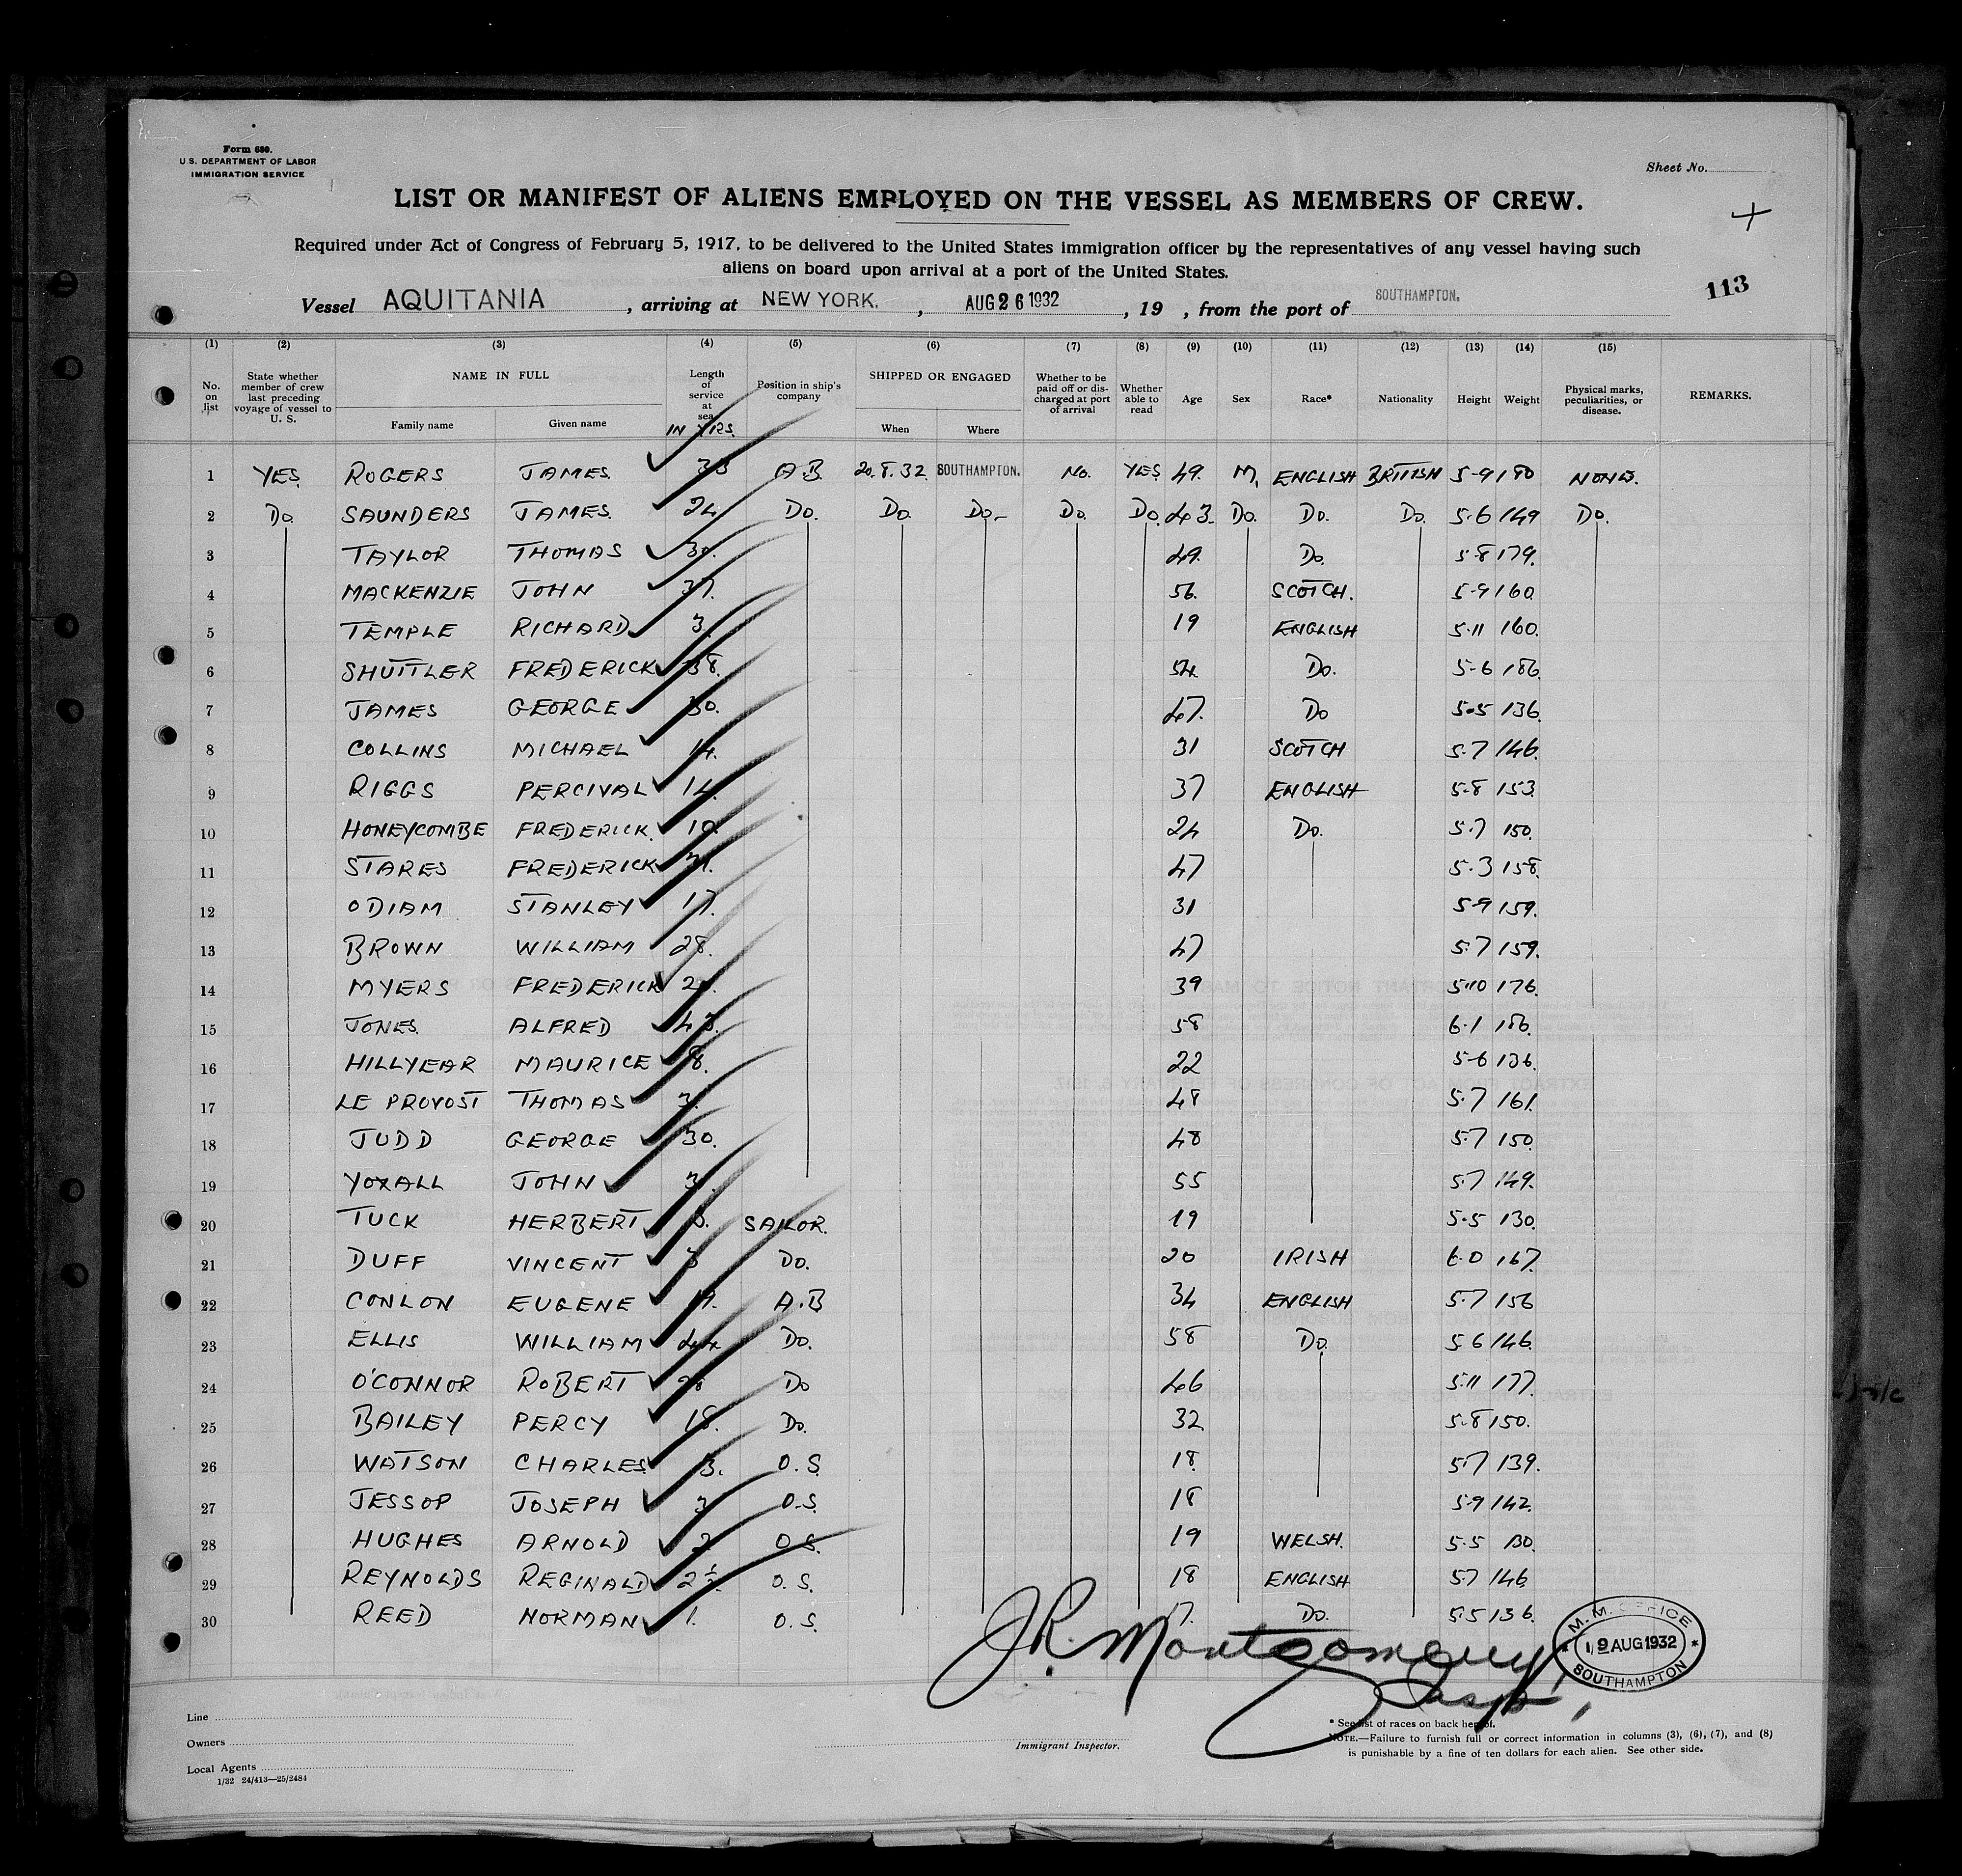 Form 680.
U.S. DEPARTMENT OF LABOR
IMMIGRATION SERVICE
Sheet No.
LIST OR MANIFEST OF ALIENS EMPLOYED ON THE VESSEL AS MEMBERS OF CREW.
Required under Act of Congress of February 5, 1917, to be delivered to the United States immigration officer by the representatives of any vessel having such
aliens on board upon arrival at a port of the United States.
113
Vessel AQUITANIA , arriving at NEW YORK. , AUG 26 1932 , 19 , from the port of SOUTHAMPTON.
(1) (2) (3) (4) (5) (6) (7) (8) (9) (10) (11) (12) (13) (14) (15)
No. on list State whether member of crew last preceding voyage of vessel to U. S. NAME IN FULL Family name Given name Length of service at sea IN YRS. Position in ship's company SHIPPED OR ENGAGED When Where Whether to be paid off or discharged at port of arrival Whether able to read Age Sex Race* Nationality Height Weight Physical marks, peculiarities, or disease. REMARKS.
1 YES. ROGERS JAMES. 33 A.B. 20.8.32. SOUTHAMPTON. No. YES 49. M, ENGLISH BRITISH 5-9 180 NONE.
2 Do. SAUNDERS JAMES. 24 Do. Do. Do- Do. Do. 43. Do. Do. Do. 5.6 149 Do.
3 TAYLOR THOMAS 30. 49. Do. 5.8 179.
4 MACKENZIE JOHN 37. 56. SCOTCH. 5-9 160.
5 TEMPLE RICHARD 3. 19 ENGLISH 5.11 160.
6 SHUTTLER FREDERICK 38. 54 Do. 5-6 186.
7 JAMES GEORGE 30. 47. Do 5.5 136.
8 COLLINS MICHAEL 14. 31 SCOTCH 5.7 146.
9 RIGGS PERCIVAL 14. 37 ENGLISH 5.8 153.
10 HONEYCOMBE FREDERICK. 10. 24 Do. 5.7 150.
11 STARES FREDERICK 31. 47 5.3 158.
12 ODIAM STANLEY 17. 31 5.9 159.
13 BROWN WILLIAM 28. 47 5.7 159.
14 MYERS FREDERICK 39 5.10 176.
15 JONES. ALFRED 43. 58 6.1 186.
16 HILLYEAR MAURICE 8. 22 5-6 136.
17 LE PROVOST THOMAS 48 5.7 161.
18 JUDD GEORGE 30. 48 5.7 150.
19 YOXALL JOHN 55 5.7 149.
20 TUCK HERBERT SAILOR. 19 5.5 130.
21 DUFF VINCENT 3 Do. 20 IRISH 6.0 167.
22 CONLON EUGENE A.B 34 ENGLISH 5.7 156
23 ELLIS WILLIAM 44. Do. 58 Do. 5.6 146.
24 O'CONNOR ROBERT Do 46 5.11 177.
25 BAILEY PERCY 18. Do. 32 5.8 150.
26 WATSON CHARLES 3. O.S. 18. 5.7 139.
27 JESSOP JOSEPH 3 O.S. 18 5.9 142.
28 HUGHES ARNOLD 2 O.S. 19 WELSH. 5.5 130.
29 REYNOLDS REGINALD 2½. O.S. 18 ENGLISH 5.7 146.
30 REED NORMAN 1. O.S. 17. Do. 5.5 136.
J.R. Montgomery
Insp.
M. M. OFFICE
19 AUG 1932
SOUTHAMPTON
Line
Owners
Local Agents
1/32 24/413—25/2484
Immigrant Inspector.
* See list of races on back hereof.
NOTE.—Failure to furnish full or correct information in columns (3), (6), (7), and (8)
is punishable by a fine of ten dollars for each alien. See other side.